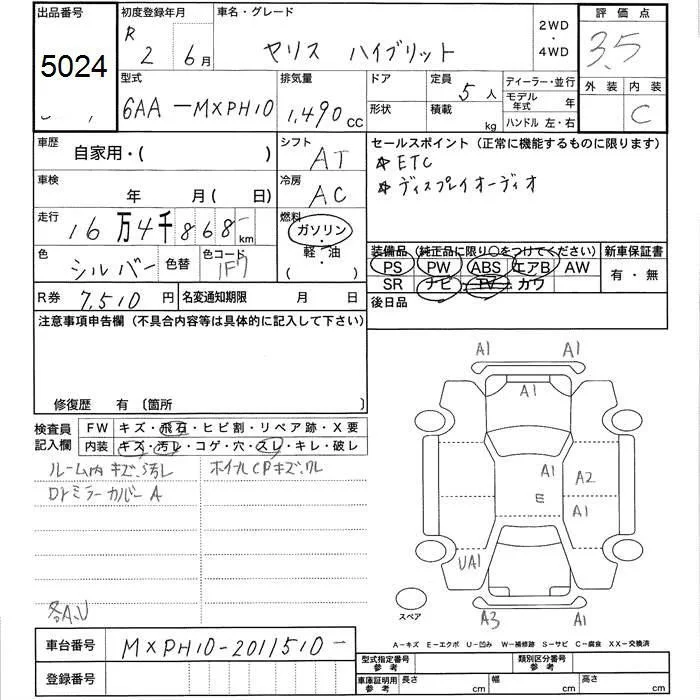 出品番号
5024
初度登録年月
R 2 6月
車名・グレード
ヤリス ハイブリット
2WD
・
4WD
評価点
3.5
外装 内装
C
型式
6AA-MXPH10
排気量
1,490 CC
ドア
形状
定員 5人
積載 kg
ディーラー・並行
モデル年式 年
ハンドル 左・右
車歴
自家用・( )
シフト
AT
セールスポイント (正常に機能するものに限ります)
☆ETC
☆ディスプレイオーディオ
車検
年 月( 日)
冷房
AC
走行
16万4千868- km
燃料
ガソリン
・
軽・油
( )
色
シルバー
色替
色コード
1F7
装備品 (純正品に限り○をつけてください)
PS PW ABS エアB AW
SR ナビ TV カワ
新車保証書
有・無
R券 7,510円
名変通知期限 月 日
後日品
注意事項申告欄 (不具合内容等は具体的に記入して下さい)
修復歴 有 〔箇所 〕
検査員記入欄
FW キズ・飛石・ヒビ割・リペア跡・X要
内装 キズ・汚レ・コゲ・穴・スレ・キレ・破レ
ルーム内キズ、汚レ
ホイルCPキズ、ワレ
Drミラーカバー A
各A,U
A1 A1
A1
A1 A2
E A1
UA1
A3 A1
スペア
A-キズ E-エクボ U-凹み W-補修跡 S-サビ C-腐食 XX-交換済
車台番号
MXPH10-2011510-
登録番号
型式指定番号
参考
類別区分番号
参考
車庫証明用
参考
長さ cm
幅 cm
高さ cm